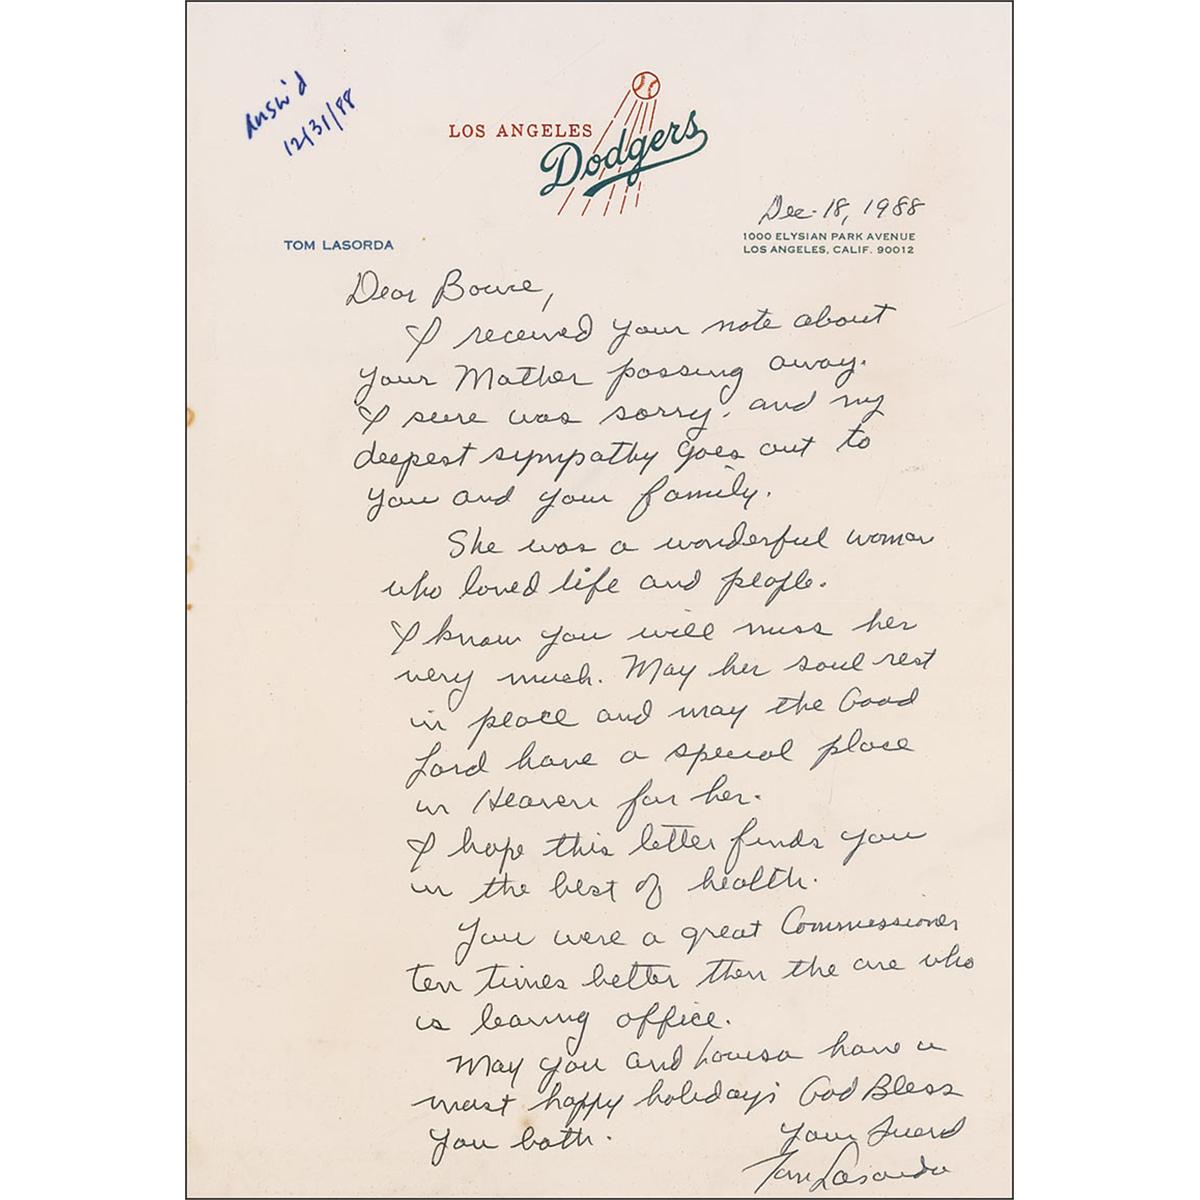 Answ'd
12/31/88
LOS ANGELES
Dodgers
Dec. 18, 1988
TOM LASORDA
1000 ELYSIAN PARK AVENUE
LOS ANGELES, CALIF. 90012
Dear Bowie,
I received your note about
your Mother passing away.
I sure was sorry, and my
deepest sympathy goes out to
you and your family.
She was a wonderful woman
who loved life and people.
I know you will miss her
very much. May her soul rest
in peace and may the Good
Lord have a special place
in Heaven for her.
I hope this letter finds you
in the best of health.
You were a great Commissioner
ten times better then the one who
is leaving office.
May you and Louisa have a
most happy holidays God Bless
You both.
Your friend
Tom Lasorda